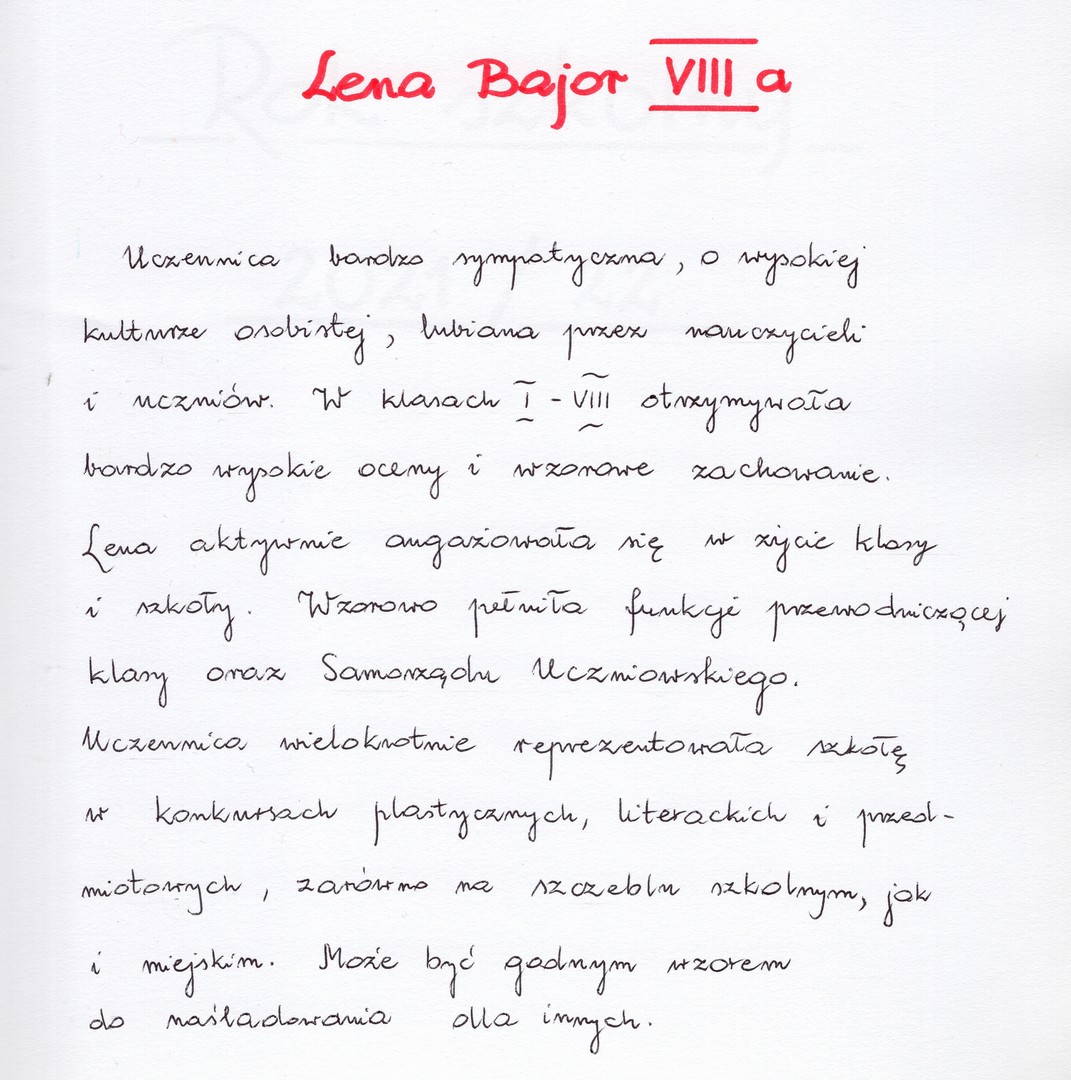 Lena Bajor VIII a
Uczennica bardzo sympatyczna, o wysokiej
kulturze osobistej, lubiana przez nauczycieli
i uczniów. W klasach I - VIII otrzymywała
bardzo wysokie oceny i wzorowe zachowanie.
Lena aktywnie angażowała się w życie klasy
i szkoły. Wzorowo pełniła funkcję przewodniczącej
klasy oraz Samorządu Uczniowskiego.
Uczennica wielokrotnie reprezentowała szkołę
w konkursach plastycznych, literackich i przed-
miotowych, zarówno na szczeblu szkolnym, jak
i miejskim. Może być godnym wzorem
do naśladowania dla innych.